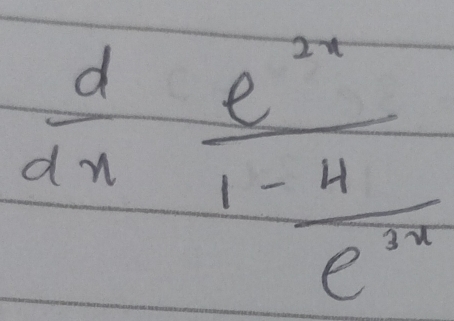 d/dx e^{2x}/(1 - 4/e^{3x})